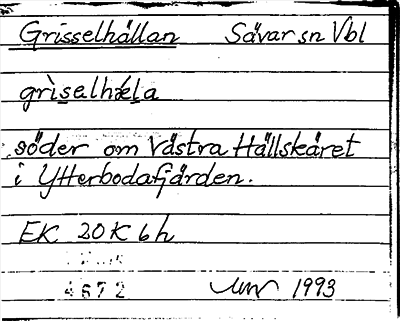 Grisselhällan Sävar sn Vbl
grìselhǽla
söder om Västra Hällskäret
i Ytterbodafjärden.
EK 20K 6h
4672 1993